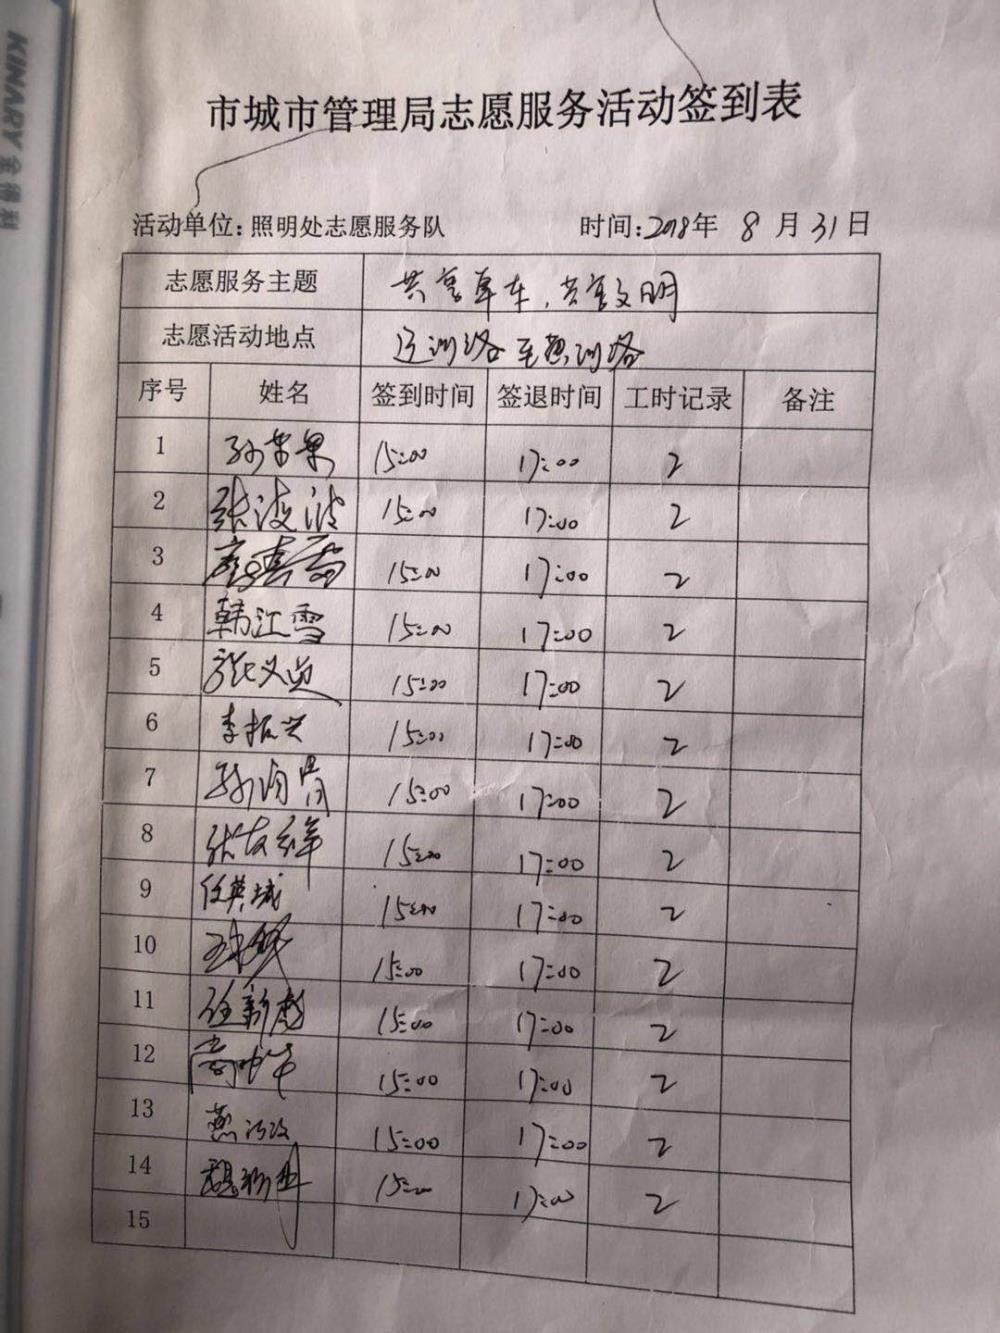 KINARY 金得利
市城市管理局志愿服务活动签到表
活动单位:照明处志愿服务队 时间:2018年 8 月 31 日
志愿服务主题 共享单车,共享文明
志愿活动地点
序号 姓名 签到时间 签退时间 工时记录 备注
1 15:00 17:00 2
2 张 15:00 17:00 2
3 15:00 17:00 2
4 韩江雪 15:00 17:00 2
5 15:00 17:00 2
6 李振兴 15:00 17:00 2
7 15:00 17:00 2
8 张友祥 15:00 17:00 2
9 任英城 15:00 17:00 2
10 15:00 17:00 2
11 任新 15:00 17:00 2
12 15:00 17:00 2
13 燕 15:00 17:00 2
14 15:00 17:00 2
15